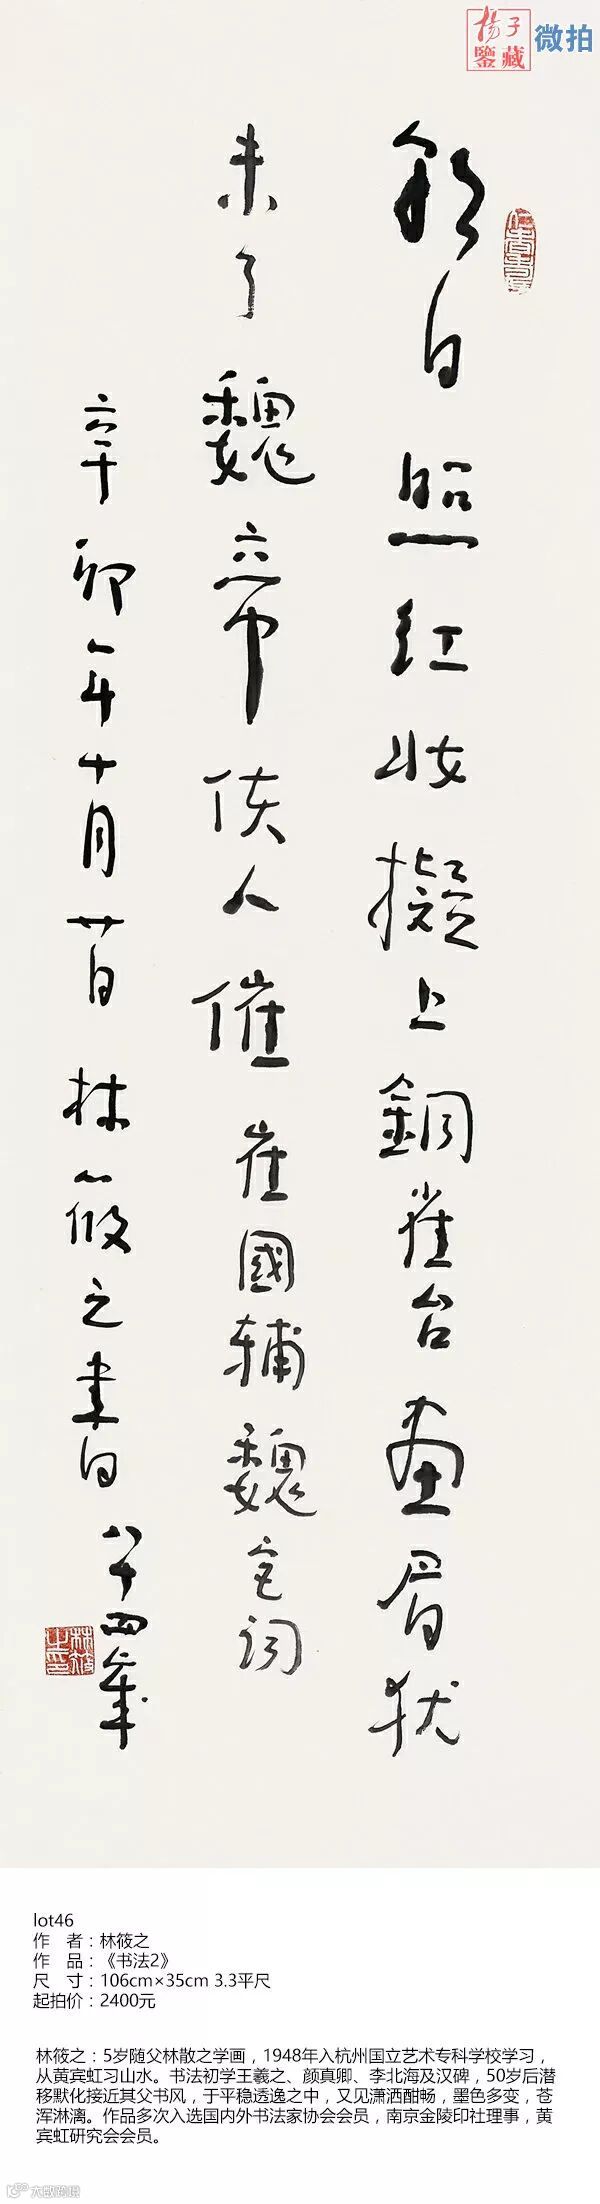 揚子
鑒藏
微拍
朝日照红妆擬上銅雀台畫眉犹
未了魏帝使人催崔國辅魏宫词
辛卯年十月廿日林筱之書日
八十四歲
lot46
作 者：林筱之
作 品：《书法2》
尺 寸：106cm×35cm 3.3平尺
起拍价：2400元
林筱之：5岁随父林散之学画，1948年入杭州国立艺术专科学校学习，
从黄宾虹习山水。书法初学王羲之、颜真卿、李北海及汉碑，50岁后潜
移默化接近其父书风，于平稳透逸之中，又见潇洒酣畅，墨色多变，苍
浑淋漓。作品多次入选国内外书法家协会会员，南京金陵印社理事，黄
宾虹研究会会员。